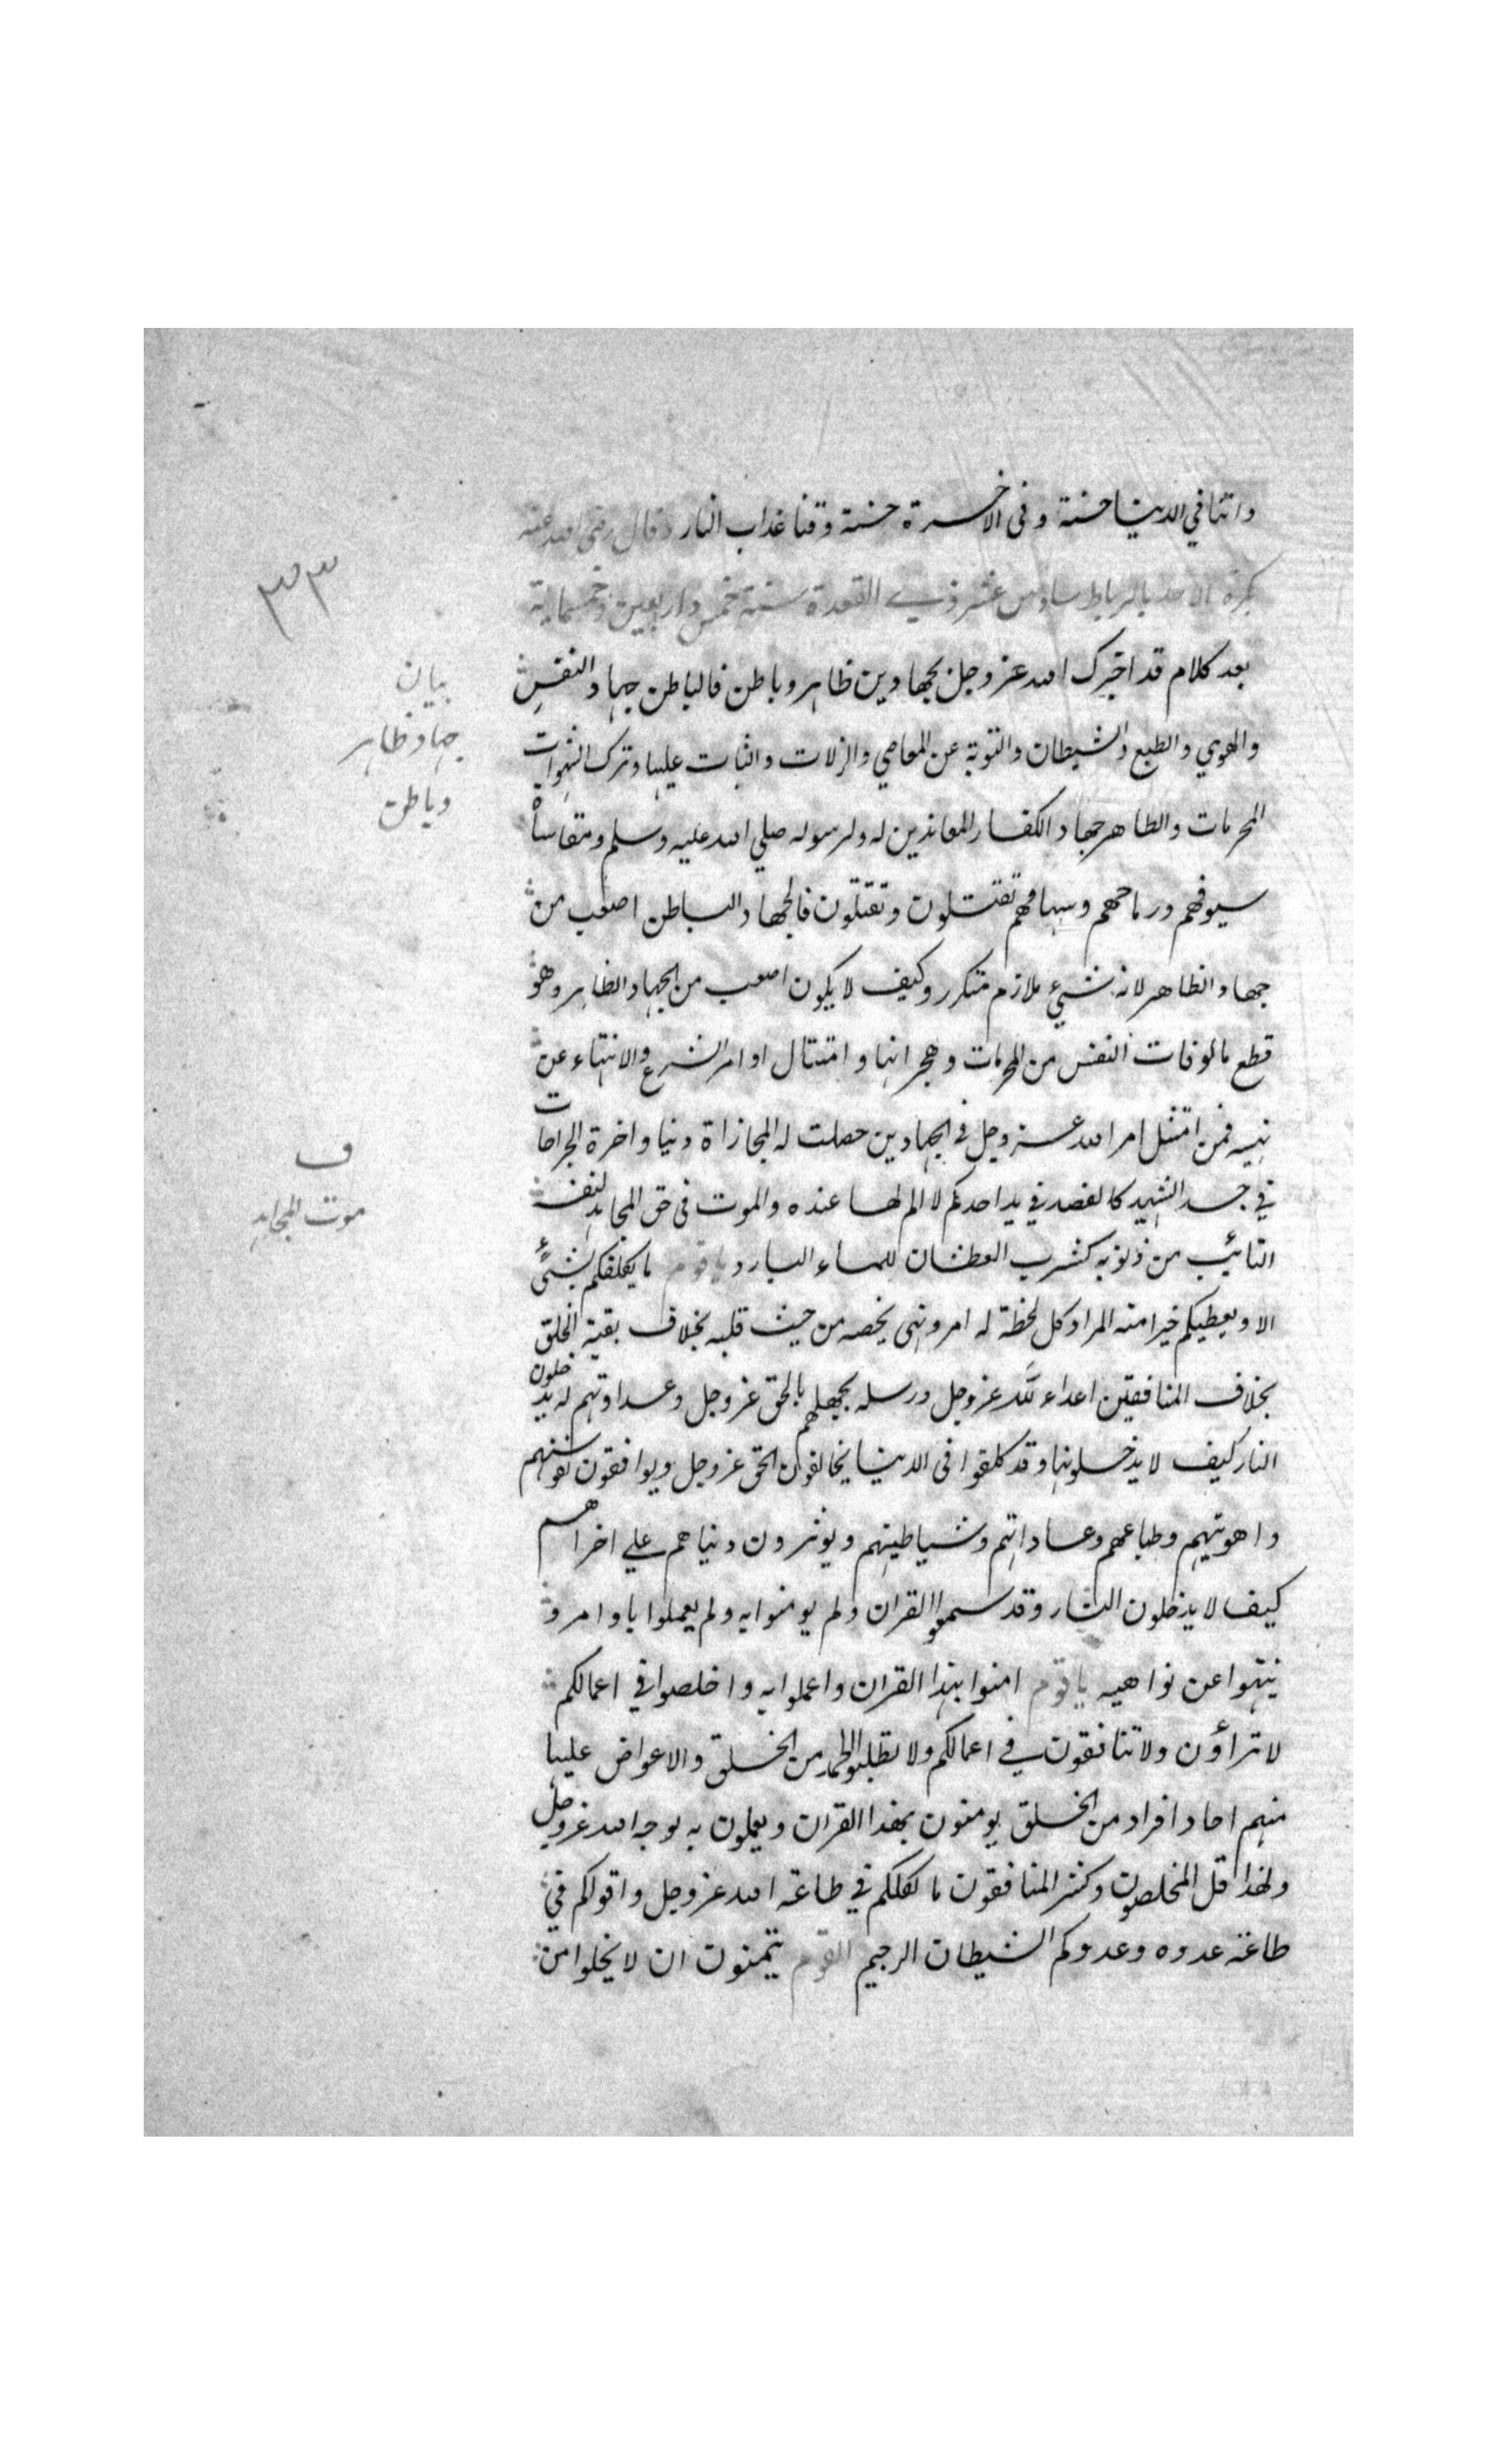 واتنا في الدنيا حسنة وفى الاخرة حسنة وقنا عذاب النار وقال رضى الله عنه
بكرة الاحد بالرباط سادس عشر ذي القعدة سنة خمس واربعين وخمسماية
بعد كلام قد اخبرك الله عز وجل بجهادين ظاهر وباطن فالباطن جهاد النفس
والهوي والطبع والشيطان والتوبة عن المعاصي والزلات والثبات عليها وترك الشهوات
المحرمات والظاهر جهاد الكفار المعاندين له ولرسوله صلي الله عليه وسلم ومقاساة
سيوفهم ورماحهم وسهامهم تقتلون وتقتلون فالجهاد الباطن اصعب من
جهاد الظاهر لانه شيء ملازم متكرر وكيف لا يكون اصعب من الجهاد الظاهر وهو
قطع مالوفات النفس من المحرمات وهجرانها وامتثال اوامر الشرع والانتهاء عن
نهيه فمن امتثل امر الله عز وجل في الجهادين حصلت له المجازاة دنيا واخرة الجراحات
في جسد الشهيد كالفصد في يد احدكم لا الم لها عنده والموت فى حق المجاهد لنفسه
التائب من ذنوبه كشرب العطشان للماء البارد يا قوم ما يكلفكم بشيءٍ
الا ويعطيكم خيرا منه المراد كل لحظة له امر ونهى يخصه من حيث قلبه بخلاف بقية الخلق
بخلاف المنافقين اعداء لله عز وجل ورسله بجهلهم بالحق عز وجل وعداوتهم له يدخلون
النار كيف لا يدخلونها وقد كلفوا فى الدنيا يخالفون الحق عز وجل ويوافقون نفوسهم
واهويتهم وطباعهم وعاداتهم وشياطينهم ويوثرون دنياهم علي اخراهم
كيف لا يدخلون النار وقد سمعوا القران ولم يومنوا به ولم يعملوا باوامره و
ينتهوا عن نواهيه يا قوم امنوا بهذا القران واعملوا به واخلصوا في اعمالكم
لا تراؤن ولا تنافقون في اعمالكم ولا تطلبوا الحمد من الخلق والاعواض عليها
منهم احاد افراد من الخلق يومنون بهذا القران ويعملون به لوجه الله عز وجل
ولهذا قل المخلصون وكثر المنافقون ما اكسلكم في طاعة الله عز وجل واقواكم في
طاعة عدوه وعدوكم الشيطان الرجيم القوم يتمنون ان لا يخلوا من
٣٣
بيان
جهاد ظاهر
وباطن
ف
موت المجاهد